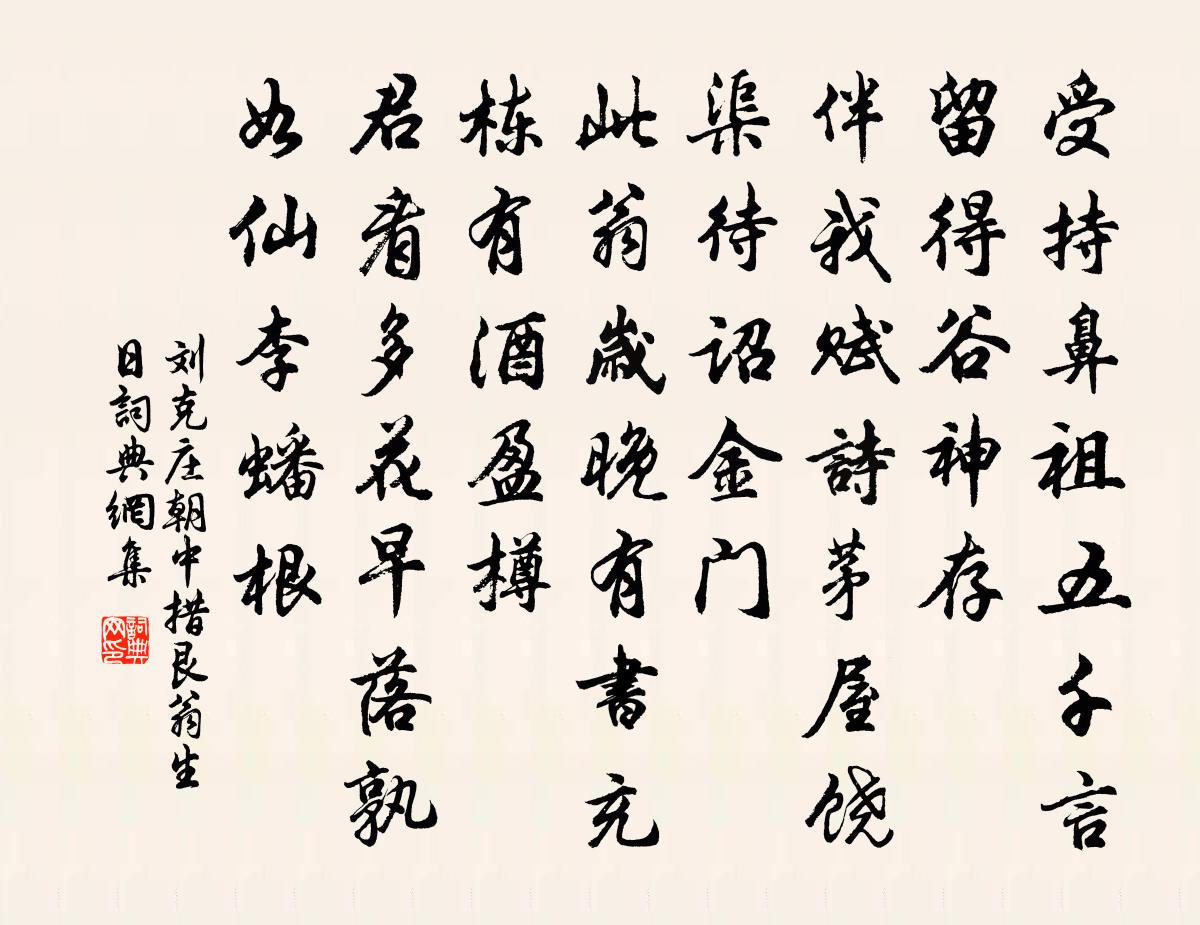 受持鼻祖五千言
留得谷神存
伴我赋詩茅屋饶
渠待诏金门
此翁歲晚有書充
栋有酒盈樽
君看多花早落孰
如仙李蟠根
刘克庄朝中措艮翁生
日詞典網集
詞典网印